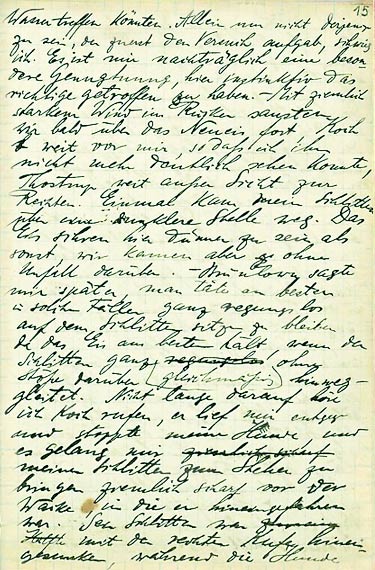 15
Wasser treffen könnten. Allein um nicht derjenige
zu sein, der zuerst den Versuch aufgab, schwieg
ich. Es ist mir nachträglich eine beson
dere Genugtuung hier instinktiv das
richtige getroffen zu haben. – Mit ziemlich
starkem Wind im Rücken sausten
wir bald über das Neueis fort. Koch
weit vor mir, sodass ich ihn
nicht mehr deutlich sehen konnte,
Thostrup weit außer Sicht zur
Rechten. Einmal kam mein Schlitten
über eine dunklere Stelle weg. Das
Eis schien hier dünner zu sein als
sonst, wir kamen aber ohne
Unfall darüber. – Brönlund sagte
mir später, man täte am besten
in solchen Fällen ganz regungslos
auf dem Schlitten sitzen zu bleiben
da das Eis am besten hält, wenn der
Schlitten ganz regungslos ohne
Stöße darüber (gleichmäßig) hinweg-
gleitet. Nicht lange darauf höre
ich Koch rufen, er lief mir entgegen
und stoppte meine Hunde, und
es gelang mir ziemlich scharf
meinen Schlitten zum Stehen zu
bringen ziemlich scharf vor der
Wake in die er hineingefahren
war. Sein Schlitten war
mit der rechten Kufe hinein-
gesunken, während die Hunde